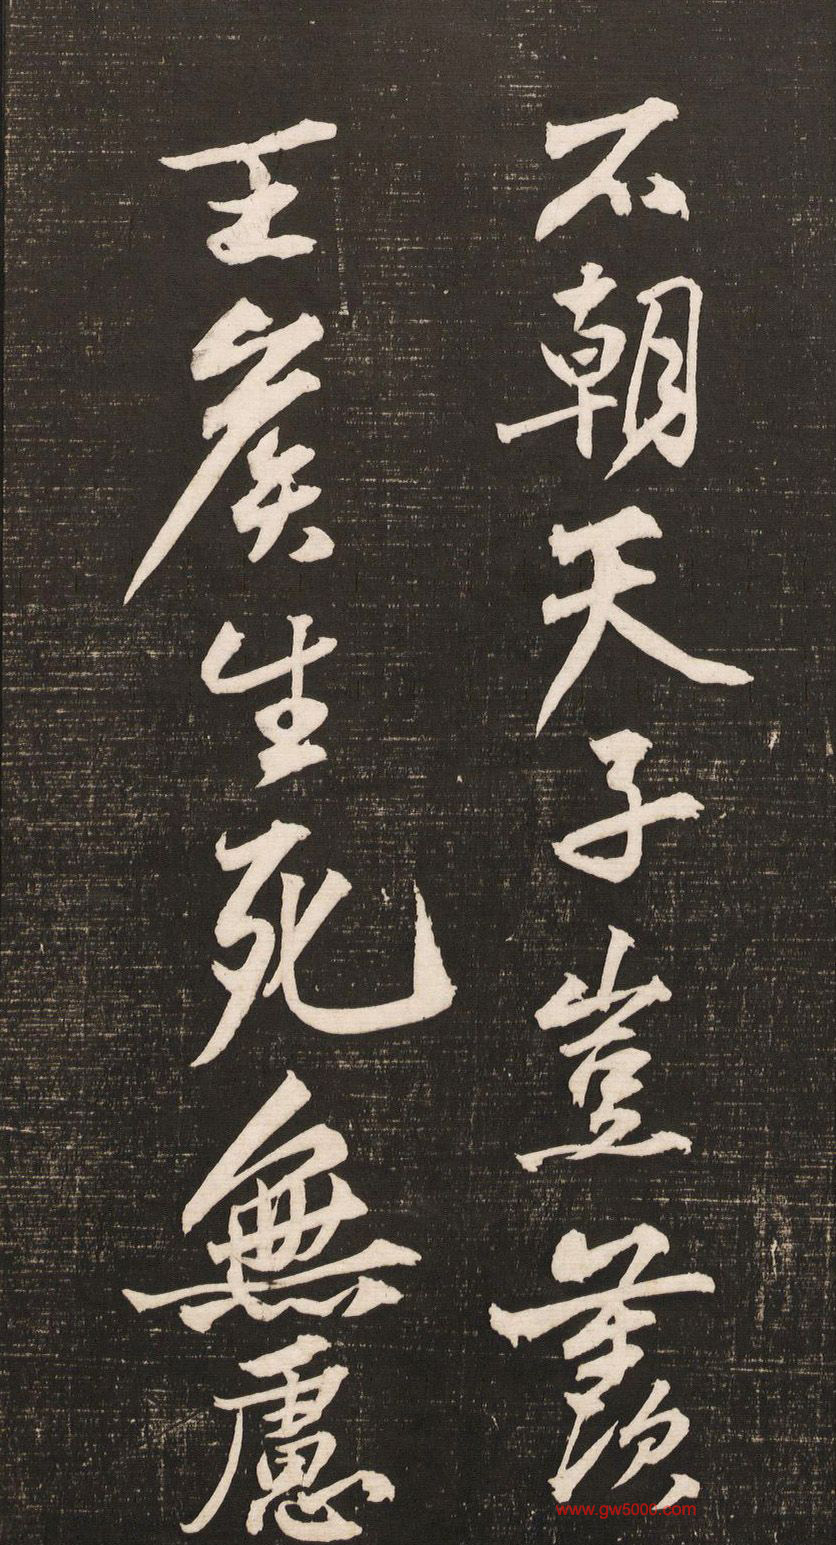 不朝天子豈羡
王侯生死無慮
www.gw5000.com